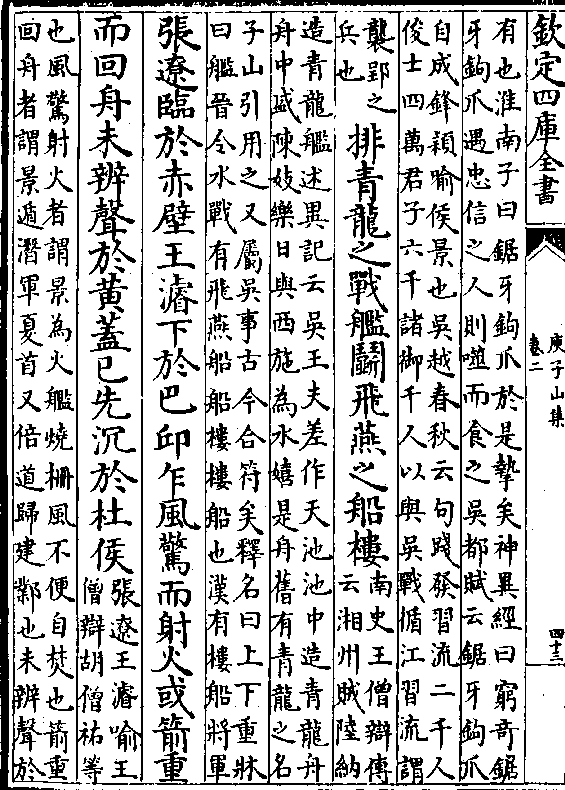 欽定四庫全書
庾子山集
卷二
四十三
有也淮南子曰鋸牙鉤爪於是摯矣神異經曰窮奇鋸
牙鉤爪遇忠信之人則噬而食之吳都賦云鋸牙鉤爪
自成鋒穎喻侯景也吳越春秋云句踐發習流二千人
俊士四萬君子六千諸御千人以與吳戰循江習流謂
襲郢之
兵也
排青龍之戰艦鬭飛燕之船樓
南史王僧辯傳
云湘州賊陸納
造青龍艦述異記云吳王夫差作天池池中造青龍舟
舟中盛陳妓樂日與西施為水嬉是舟舊有青龍之名
子山引用之又屬吳事古今合符矣釋名曰上下重牀
曰艦晉令水戰有飛燕船船樓樓船也漢有樓船將軍
張遼臨於赤壁王濬下於巴邱乍風驚而射火或箭重
而回舟未辨聲於黃蓋已先沉於杜侯
張遼王濬喻王
僧辯胡僧祐等
也風驚射火者謂景為火艦燒柵風不便自焚也箭重
回舟者謂景遁潛軍夏首又倍道歸建鄴也未辨聲於